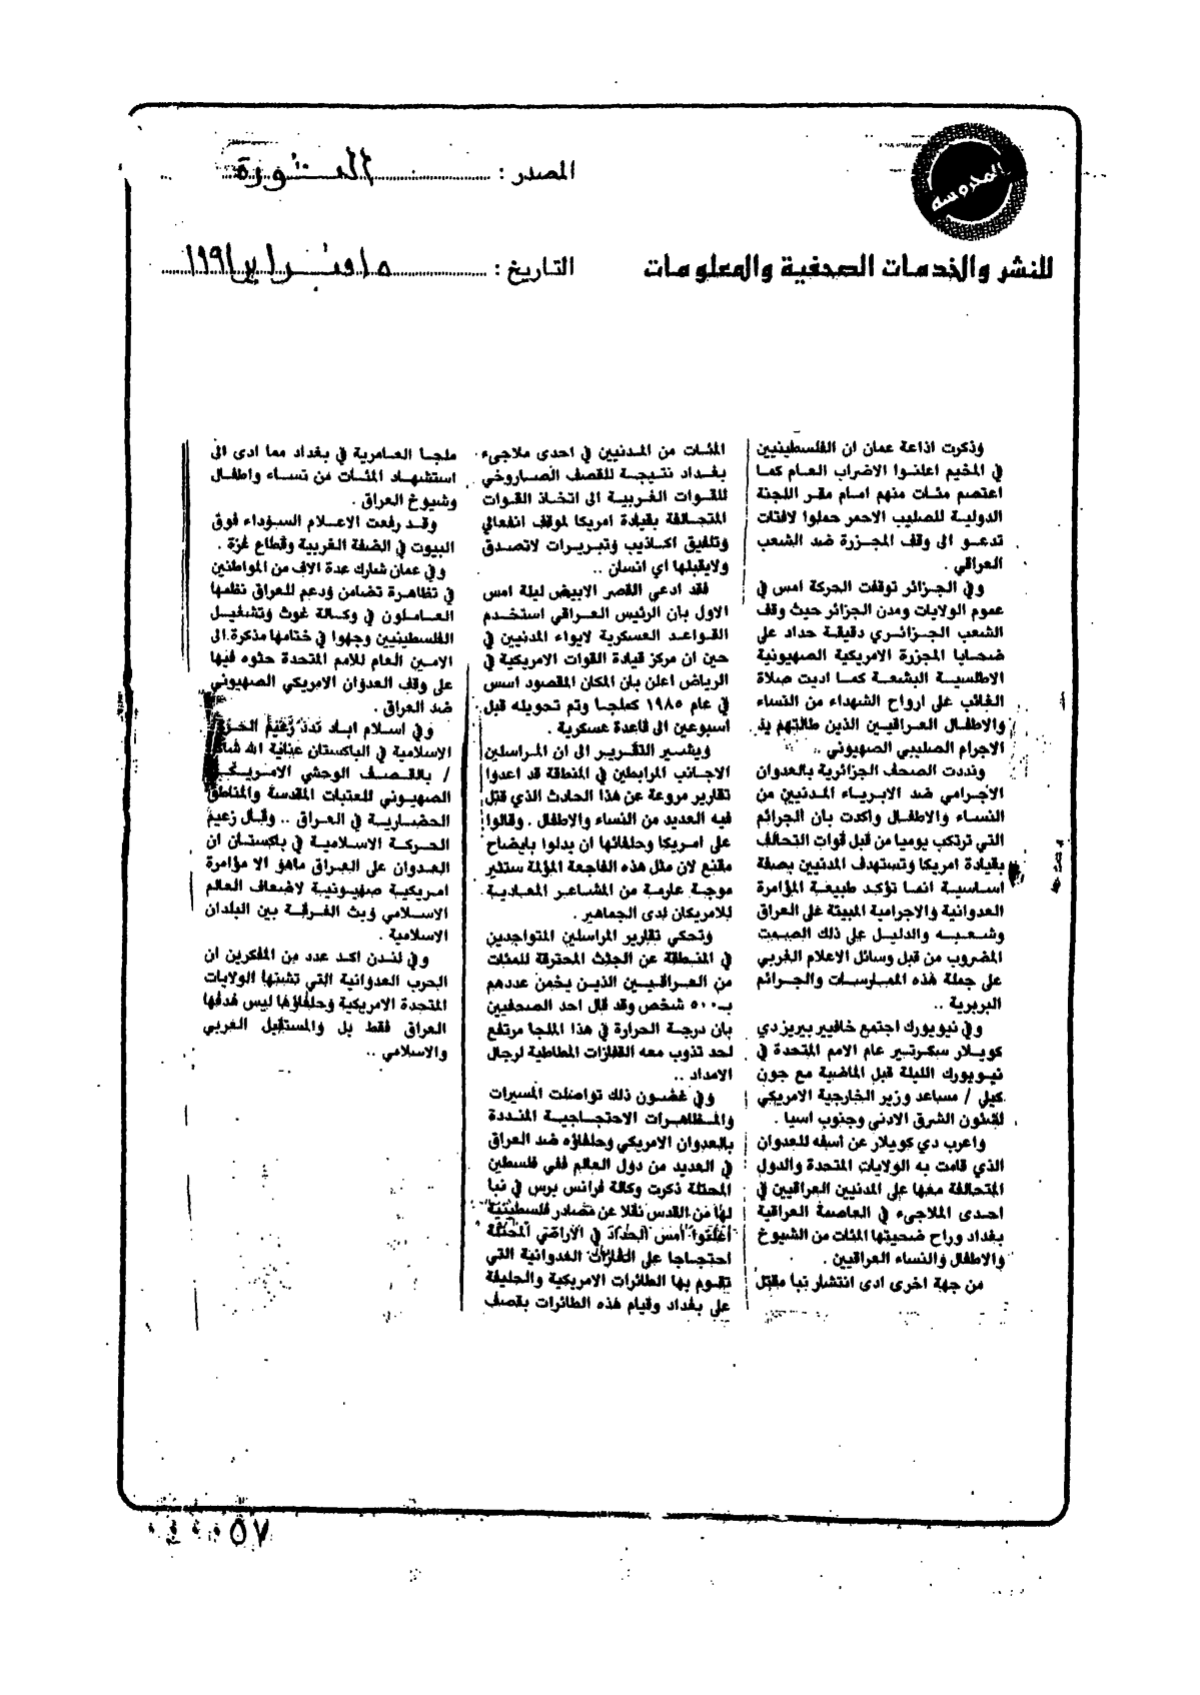 المحروسة
للنشر والخدمات الصحفية والمعلومات
المصدر : الثورة
التاريخ : ١٥ فبراير ١٩٩١
وذكرت اذاعة عمان ان الفلسطينيين
في المخيم اعلنوا الاضراب العام كما
اعتصم مئات منهم امام مقر اللجنة
الدولية للصليب الاحمر حملوا لافتات
تدعو الى وقف المجزرة ضد الشعب
العراقي .
وفي الجزائر توقفت الحركة امس في
عموم الولايات ومدن الجزائر حيث وقف
الشعب الجزائري دقيقة حداد على
ضحايا المجزرة الامريكية الصهيونية
الاطلسية البشعة كما اديت صلاة
الغائب على ارواح الشهداء من النساء
والاطفال العراقيين الذين طالتهم يد
الاجرام الصليبي الصهيوني ..
ونددت الصحف الجزائرية بالعدوان
الاجرامي ضد الابرياء المدنيين من
النساء والاطفال واكدت بان الجرائم
التي ترتكب يوميا من قبل قوات التحالف
بقيادة امريكا وتستهدف المدنيين بصفة
اساسية انما تؤكد طبيعة المؤامرة
العدوانية والاجرامية المبيتة على العراق
وشعبه والدليل على ذلك الصمت
المضروب من قبل وسائل الاعلام الغربي
على جملة هذه الممارسات والجرائم
البربرية ..
وفي نيويورك اجتمع خافيير بيريز دي
كويلار سكرتير عام الامم المتحدة في
نيويورك الليلة قبل الماضية مع جون
كيلي / مساعد وزير الخارجية الامريكي
لشئون الشرق الادنى وجنوب اسيا .
واعرب دي كويلار عن اسفه للعدوان
الذي قامت به الولايات المتحدة والدول
المتحالفة معها على المدنيين العراقيين في
احدى الملاجىء في العاصمة العراقية
بغداد وراح ضحيتها المئات من الشيوخ
والاطفال والنساء العراقيين .
من جهة اخرى ادى انتشار نبا مقتل
المئات من المدنيين في احدى ملاجىء
بغداد نتيجة للقصف الصاروخي
للقوات الغربية الى اتخاذ القوات
المتحالفة بقيادة امريكا لموقف انفعالي
وتلفيق اكاذيب وتبريرات لاتصدق
ولايقبلها اي انسان ..
فقد ادعي القصر الابيض ليلة امس
الاول بان الرئيس العراقي استخدم
القواعد العسكرية لايواء المدنيين في
حين ان مركز قيادة القوات الامريكية في
الرياض اعلن بان المكان المقصود اسس
في عام ١٩٨٥ كملجا وتم تحويله قبل
اسبوعين الى قاعدة عسكرية .
ويشير التقرير الى ان المراسلين
الاجانب المرابطين في المنطقة قد اعدوا
تقارير مروعة عن هذا الحادث الذي قتل
فيه العديد من النساء والاطفال . وقالوا
على امريكا وحلفائها ان يدلوا بايضاح
مقنع لان مثل هذه الفاجعة المؤلمة ستثير
موجة عارمة من المشاعر المعادية
للامريكان لدى الجماهير .
وتحكي تقارير المراسلين المتواجدين
في المنطقة عن الجثث المحترقة للمئات
من العراقيين الذين يخمن عددهم
بـ ٥٠٠ شخص وقد قال احد الصحفيين
بان درجة الحرارة في هذا الملجا مرتفع
لحد تذوب معه القفازات المطاطية لرجال
الامداد ..
وفي غضون ذلك تواصلت المسيرات
والمظاهرات الاحتجاجية المنددة
بالعدوان الامريكي وحلفاؤه ضد العراق
في العديد من دول العالم ففي فلسطين
المحتلة ذكرت وكالة فرانس برس في نبا
لها من القدس نقلا عن مصادر فلسطينية
اعلنوا امس الحداد في الاراضي المحتلة
احتجاجا على الغارات العدوانية التي
تقوم بها الطائرات الامريكية والحليفة
على بغداد وقيام هذه الطائرات بقصف
ملجا العامرية في بغداد مما ادى الى
استشهاد المئات من نساء واطفال
وشيوخ العراق .
وقد رفعت الاعلام السوداء فوق
البيوت في الضفة الغربية وقطاع غزة .
وفي عمان شارك عدة الاف من المواطنين
في تظاهرة تضامن ودعم للعراق نظمها
العاملون في وكالة غوث وتشغيل
الفلسطينيين وجهوا في ختامها مذكرة الى
الامين العام للامم المتحدة حثوه فيها
على وقف العدوان الامريكي الصهيوني
ضد العراق .
وفي اسلام اباد ندد زعيم الحركة
الاسلامية في الباكستان عناية الله
/ بالقصف الوحشي الامريكي
الصهيوني للعتبات المقدسة والمناطق
الحضارية في العراق .. وقال زعيم
الحركة الاسلامية في باكستان ان
العدوان على العراق ماهو الا مؤامرة
امريكية صهيونية لاضعاف العالم
الاسلامي وبث الفرقة بين البلدان
الاسلامية .
وفي لندن اكد عدد من المفكرين ان
الحرب العدوانية التي تشنها الولايات
المتحدة الامريكية وحلفاؤها ليس هدفها
العراق فقط بل والمستقبل العربي
والاسلامي ..
٥٧